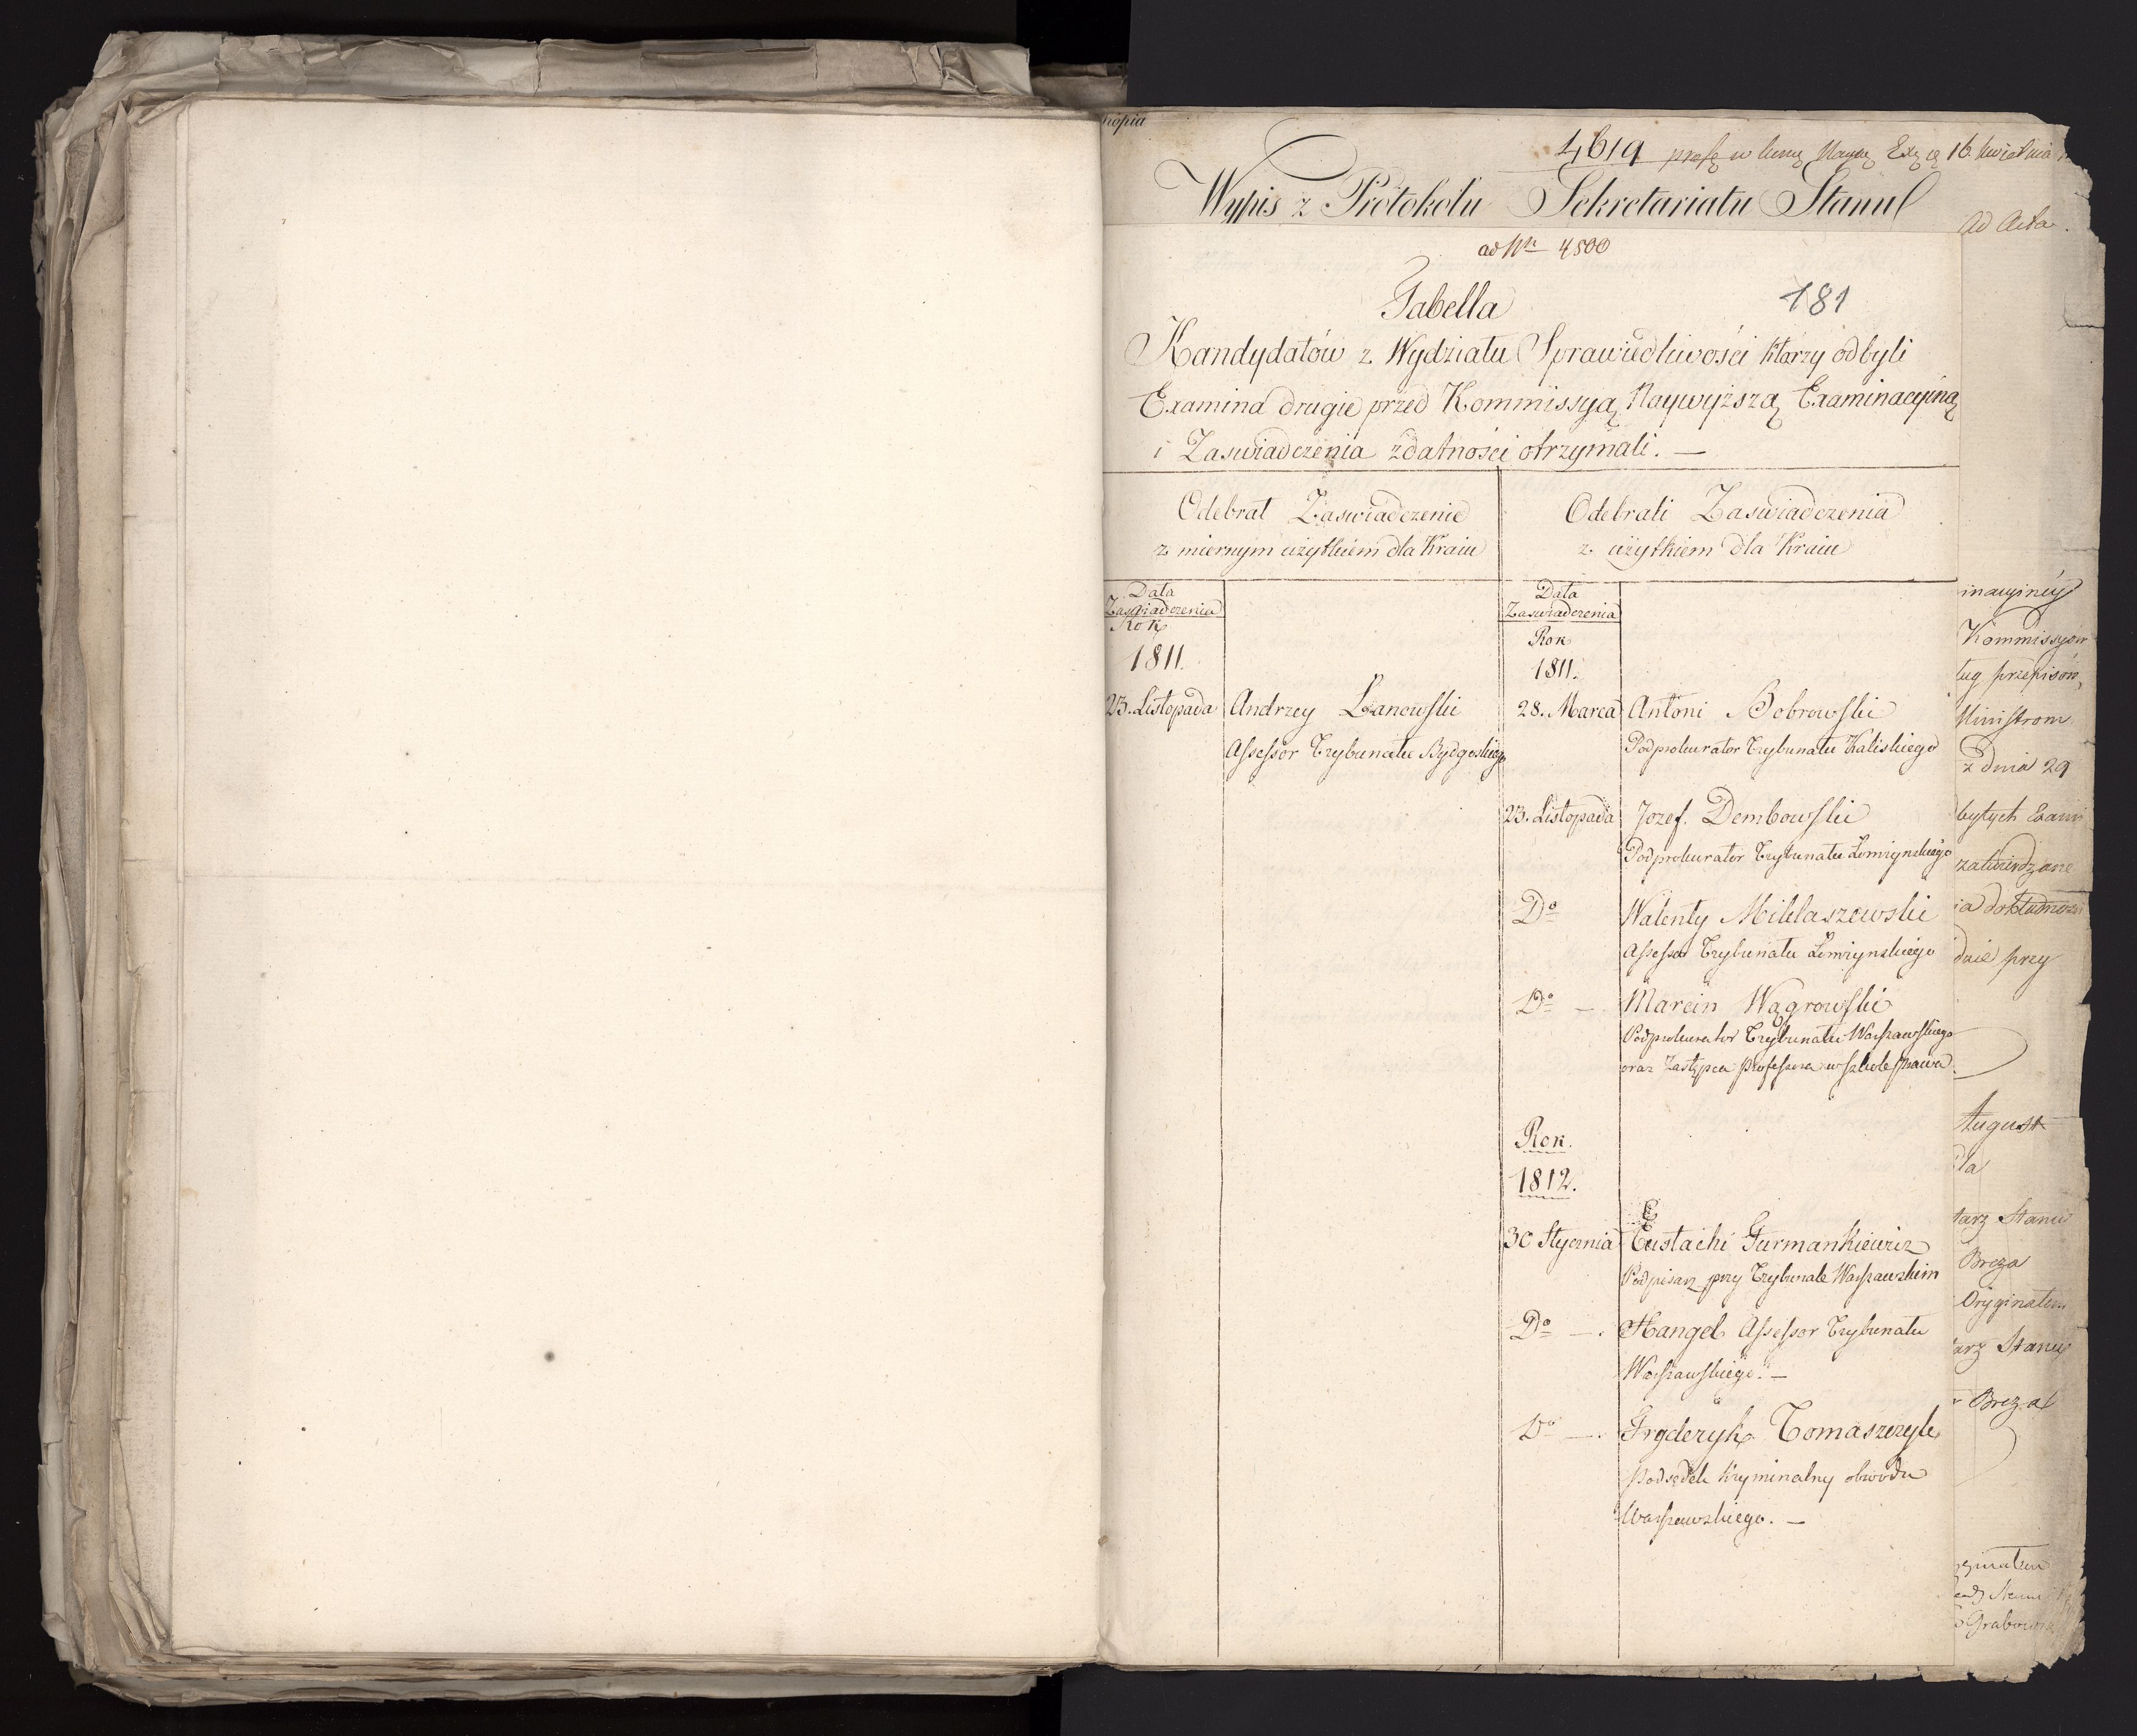 Kopia
4619
16 kwietnia
Wypis z Protokołu Sekretariatu Stanu
ad Acta.
ad Nr 4500
Tabella
181
Kandydatów z Wydziału Sprawiedliwości którzy odbyli
Examina drugie przed Kommissyą Naywyższą Examinacyiną
i Zaswiadczenia zdatności otrzymali. —
Odebrał Zaswiadczenie
z miernym użytkiem dla Kraiu
Odebrali Zaswiadczenia
z użytkiem dla Kraiu
Data
Zaswiadczenia
Rok
1811.
23. Listopada Andrzey Łanowski
Assessor Trybunału Bydgoskiego
Data
Zaswiadczenia
Rok
1811.
28. Marca Antoni Bobrowski
Podprokurator Trybunału Kaliskiego
23. Listopada Jozef. Dembowski
Podprokurator Trybunału Łomzynskiego
Do Walenty Miklaszewski
Assessor Trybunału Łomzynskiego
Do — Marcin Wągrowski
Podprokurator Trybunału Warszawskiego
oraz Zastępca Professora w szkole prawa.
Rok.
1812.
30 Stycznia Eustachi Furmankiewicz
Podpisarz przy Trybunale Warszawskim
Do — . Hangel Assessor Trybunału
Warszawskiego. —
Do — . Fryderyk Tomaszczyk
Podsędek kryminalny obwodu
Warszawskiego. —
inacyiney
Kommissyów
ług przepisów,
Ministrom
z dnia 29
bytych Exam
zatwierdzone
ia dokładności
dzie przy
August
ła
tarz Stanu
Breza
Oryginałem
arz Stanu
Breza
Grabow